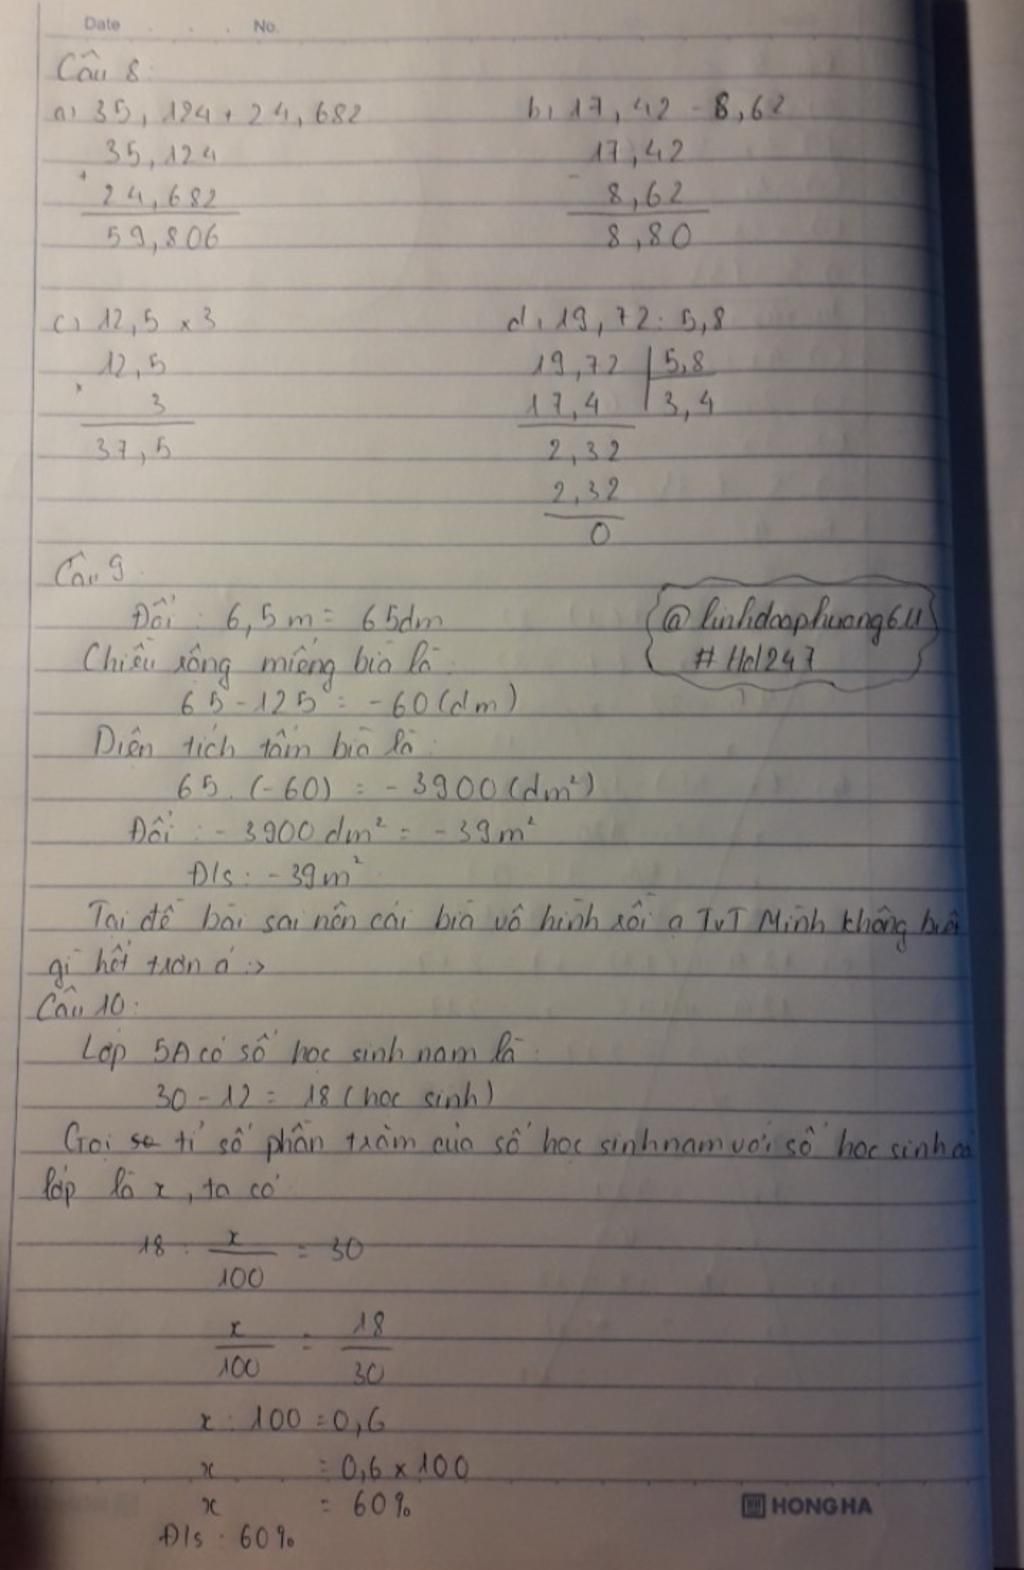 Date . . . No.
Câu 8:
a, 35,124 + 24,682
b, 17,42 - 8,62
35,124
+
24,682
59,806
17,42
-
8,62
8,80
c, 12,5 x 3
d, 19,72 : 5,8
12,5
x
3
37,5
19,72 | 5,8
17,4 | 3,4
2,32
2,32
0
Câu 9
Đổi : 6,5m = 65dm
@linhdaophuong611
#Hd247
Chiều rộng miếng bìa là:
65 - 125 = -60 (dm)
Diện tích tấm bìa là:
65 . (-60) = -3900 (dm²)
Đổi : -3900 dm² = -39m²
Đ/s : -39m²
Tại đề bài sai nên cái bìa vô hình rồi ạ TvT Mình không biết
gì hết trơn á :>
Câu 10:
Lớp 5A có số học sinh nam là:
30 - 12 = 18 (học sinh)
Gọi tỉ số phần trăm của số học sinh nam với số học sinh cả
lớp là x, ta có
18 : x/100 = 30
x/100 = 18/30
x : 100 = 0,6
x = 0,6 x 100
x = 60%
Đ/s : 60%
HONG HA